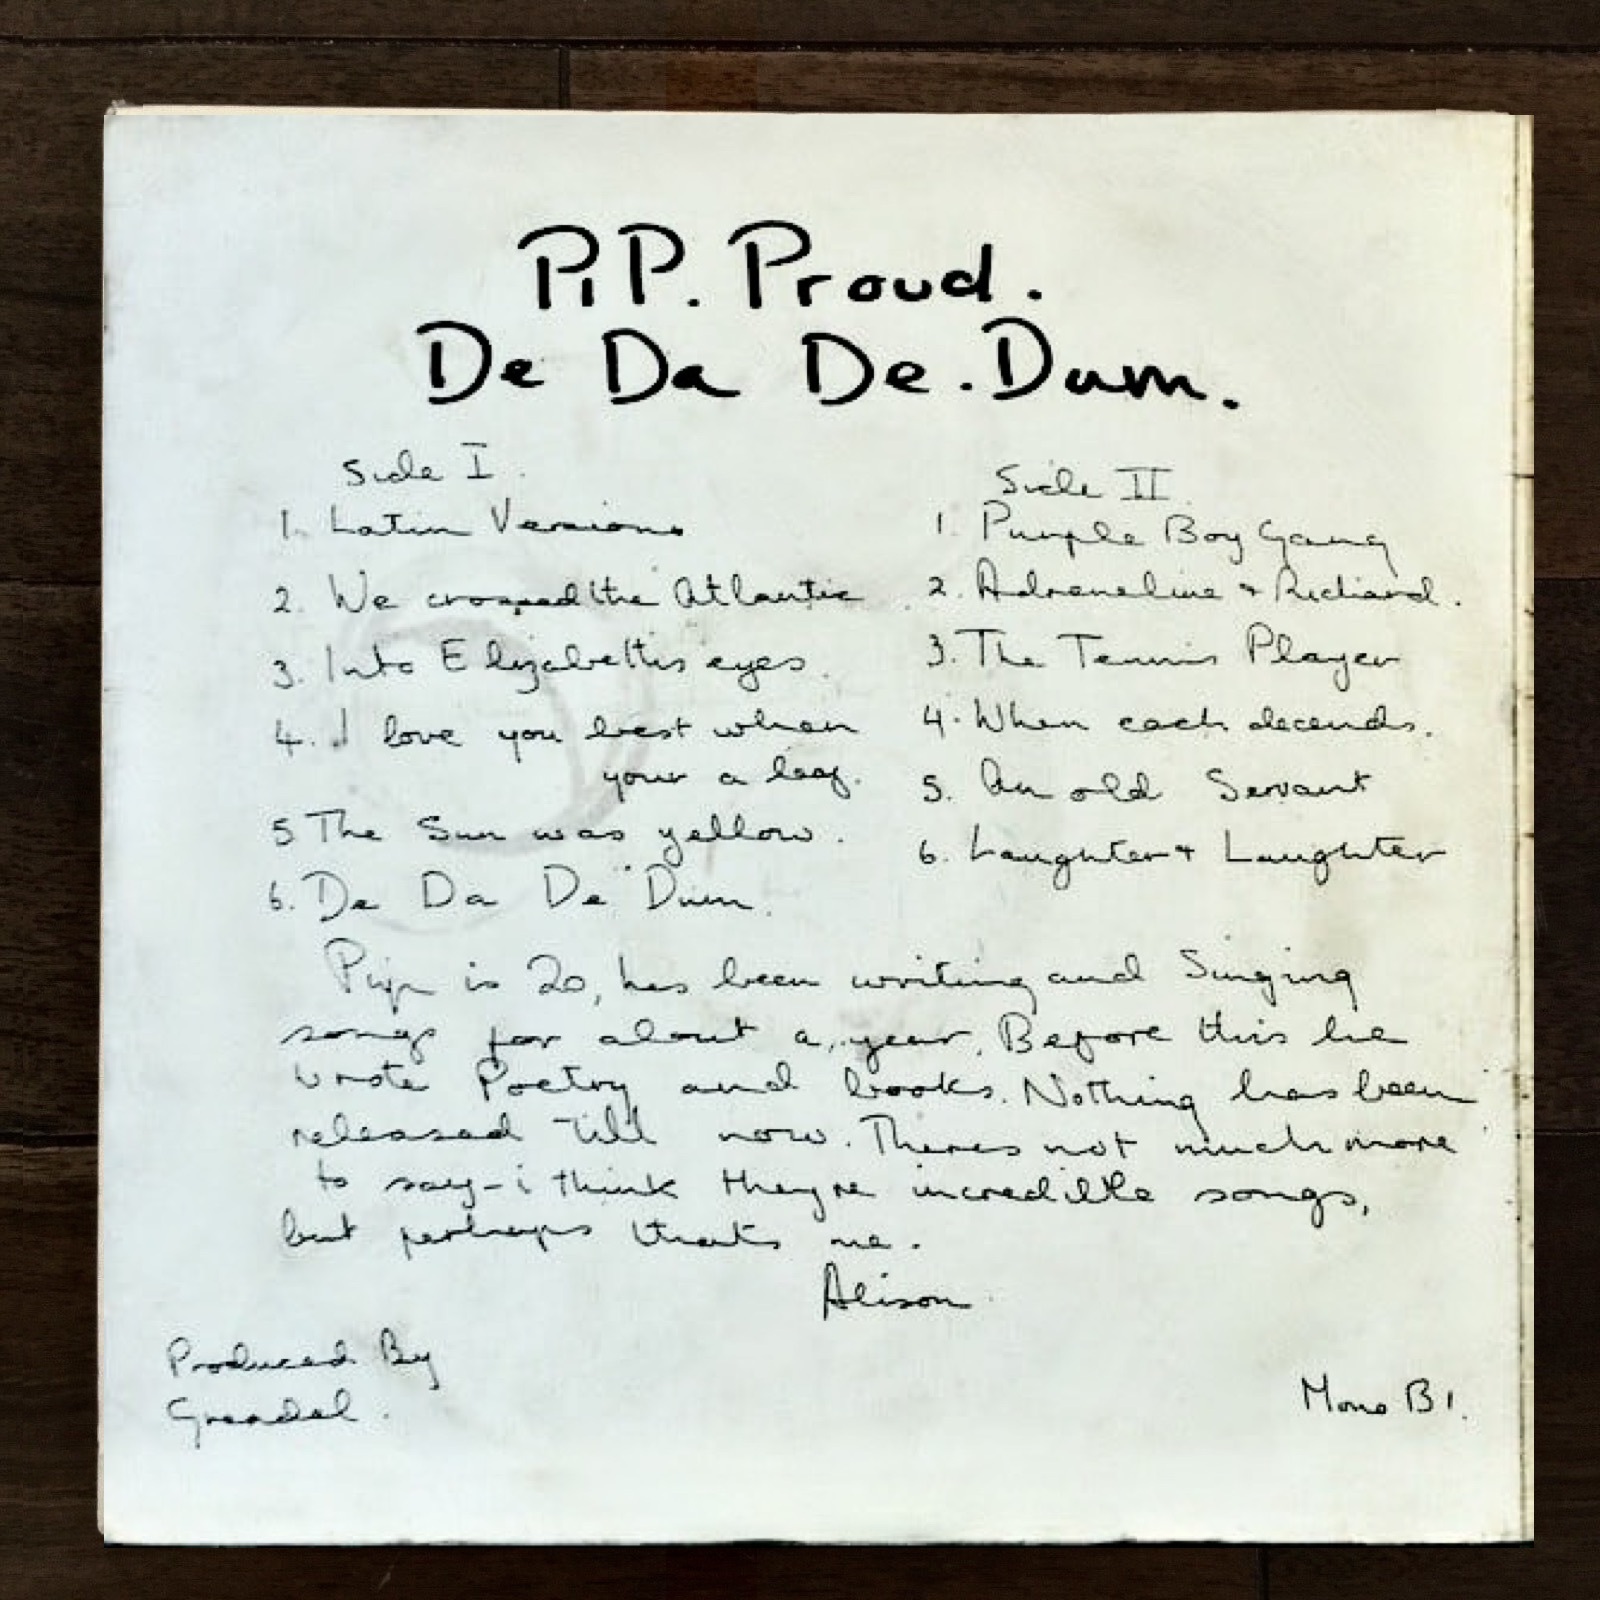 PiP. Proud.
De Da De. Dum.
Side I.
1. Latin Versions
2. We crossed the Atlantic
3. Into Elizabeth's eyes.
4. I love you best when
your a
5 The Sun was yellow.
6. De Da De Dum.
Side II
1. Purple Boy Gang
2. Adreneline + Richard.
3. The Tennis Player
4. When each decends.
5. An old Servant
6. Laughter + Laughter
Pip is 20, has been writing and Singing
songs for about a year. Before this he
wrote Poetry and books. Nothing has been
released till now. Theres not much more
to say - i think they're incredible songs,
but perhaps that's me.
Alison.
Produced By
Grendel.
Mono B1.